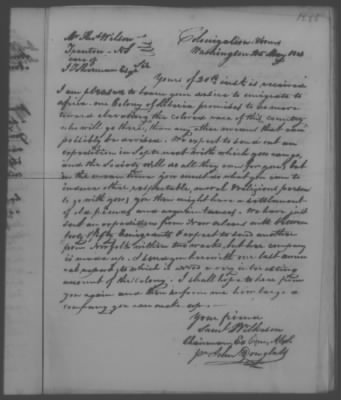 Mr Thos Wilson
Trenton NJ
care of
J Sherman Esqr
Colonization Rooms
Washington 25 May
Sir
Yours of 20th inst is received
I am pleased to learn your desire to emigrate to
Africa. our Colony of Liberia promises to do more
toward elevating the colored race of this country
who will go there, than any other means that can
possibly be devised. We expect to send out an
expedition in Sept next with which you can go
and the Society will do all they can for you, but
in the mean time you must do what you can to
induce other respectable, moral & religious persons
to go with you; you then might have a settlement
of No personal and regular
sent an expedition from New Orleans with between
forty & fifty Emigrants & expect to send another
from Norfolk within two weeks, but her company
is made up. I send you herewith our last annu
al report, to which is a very interesting
account of the Colony. I shall hope to hear from
you again and then inform me how large a
company you can make up.
Your friend
Saml Wilkeson
Chairman Ex Com